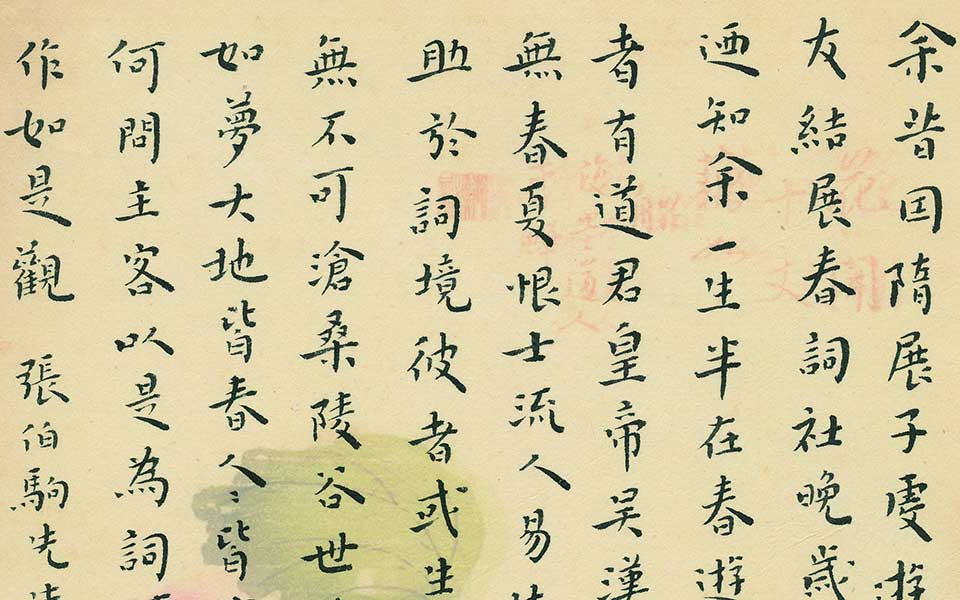 余昔因隋展子虔遊
友結展春詞社晚歲
迺知余一生半在春遊
者有道君皇帝吴漢
無春夏恨士流人易
助於詞境彼者或生
無不可滄桑陵谷世
如夢大地皆春人〻皆
何問主客以是為詞
作如是觀 張伯駒先